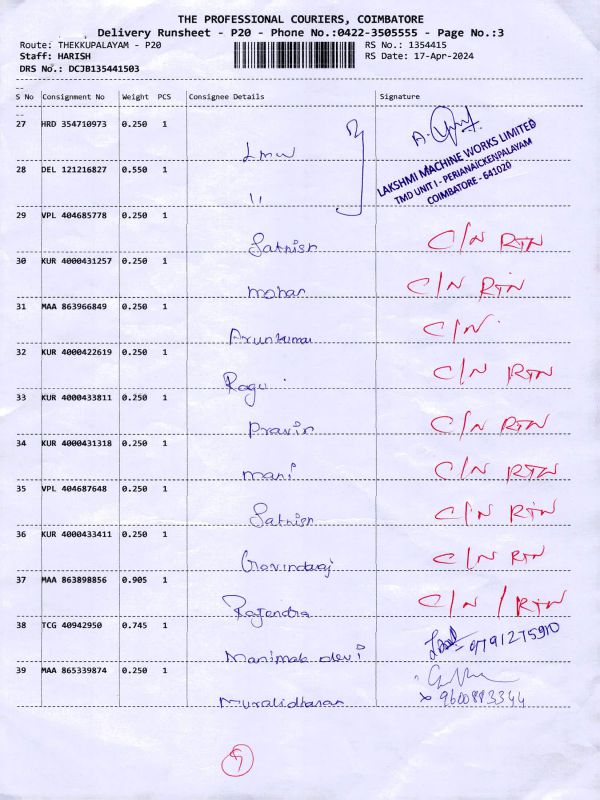 THE PROFESSIONAL COURIERS, COIMBATORE
Delivery Runsheet - P20 - Phone No.:0422-3505555 - Page No.:3
Route: THEKKUPALAYAM - P20
RS No.: 1354415
Staff: HARISH
RS Date: 17-Apr-2024
DRS No.: DCJB135441503
S No Consignment No Weight PCS Consignee Details Signature
27 HRD 354710973 0.250 1
Lmw
A.
LAKSHMI MACHINE WORKS LIMITED
TMD UNIT I - PERIANAICKENPALAYAM
COIMBATORE - 641020
28 DEL 121216827 0.550 1
11
29 VPL 404685778 0.250 1
Sathish C/N RTN
30 KUR 4000431257 0.250 1
mohan C/N RTN
31 MAA 863966849 0.250 1
Arunkumar C/N.
32 KUR 4000422619 0.250 1
Ragu C/N RTN
33 KUR 4000433811 0.250 1
Pravin C/N RTN
34 KUR 4000431318 0.250 1
mani C/N RTN
35 VPL 404687648 0.250 1
Sathish C/N RTN
36 KUR 4000433411 0.250 1
Govindaraj C/N RTN
37 MAA 863898856 0.905 1
Rajendra C/N / RTN
38 TCG 40942950 0.745 1
Manimala devi 9791275910
39 MAA 865339874 0.250 1
Muralidharan 9600883344